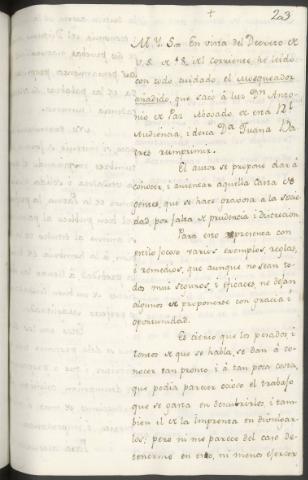 203
M. Y. S.or En vista del Decreto de
V.S. de 18 del corriente, he leido
con todo cuidado el Mosqueador
añadido, que sacó á luz Dn. Anto-
nio de Paz Abogado de esta Rl.
Audiencia, i desea Da. Juana Da
tres reimprimir.
El autor se propone dar á
conocer, i auientar aquella casta de
gentes, que se hace gravosa a la socie-
dad por falta de prudencia i discrecion.
Para esto representa con
estilo jocoso varios exemplos, reglas,
i remedios, que aunque no sean to-
dos mui seguros, i eficaces, no dejan
algunos de proponerse con gracia i
oportunidad.
Es cierto que los pesados, i
tontos de que se habla, se dan á co-
nocer tan pronto, i á tan poca costa,
que podia parecer ocioso el trabajo
que se gasta en descubrirlos, i tam-
bien el de la Imprenta en divulgar-
los; pero ni me parece del caso de-
tenerme en esto, ni menos exercer